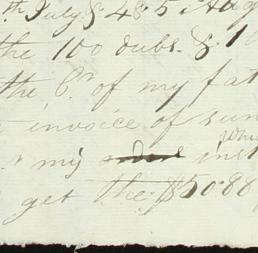 th July $ 48.5 Aug
the 100 dubs. & 1
the Cr. of my fat
invoice of sun
& my inst
get the $50.88